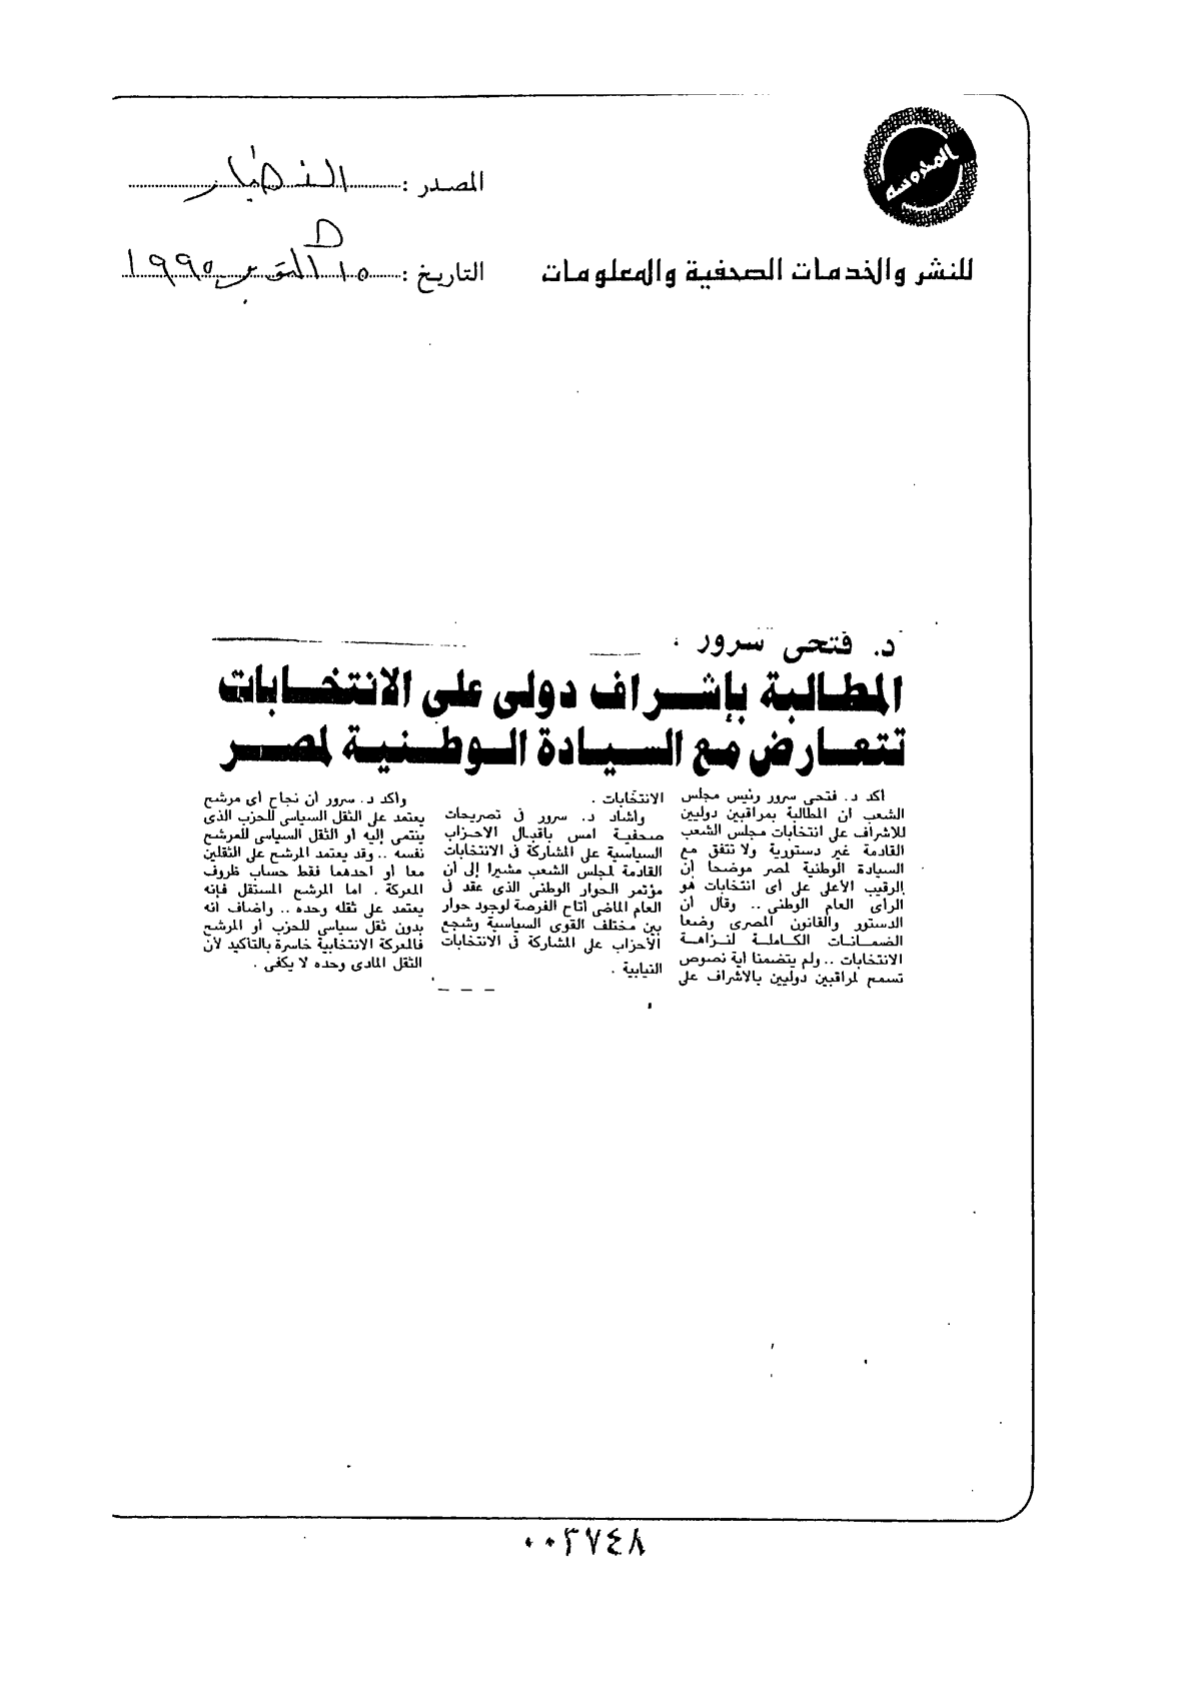 المدوسة
المصدر : النهار
للنشر والخدمات الصحفية والمعلومات
التاريخ : ١٥ اكتوبر ١٩٩٥
د. فتحى سرور
المطالبة بإشراف دولى على الانتخابات
تتعارض مع السيادة الوطنية لمصر
أكد د. فتحى سرور رئيس مجلس
الشعب ان المطالبة بمراقبين دوليين
للاشراف على انتخابات مجلس الشعب
القادمة غير دستورية ولا تتفق مع
السيادة الوطنية لمصر موضحا أن
الرقيب الأعلى على أى انتخابات هو
الرأى العام الوطنى .. وقال أن
الدستور والقانون المصرى وضعا
الضمانات الكاملة لنزاهة
الانتخابات .. ولم يتضمنا أية نصوص
تسمح لمراقبين دوليين بالاشراف على
الانتخابات .
وأشاد د. سرور فى تصريحات
صحفية امس باقبال الاحزاب
السياسية على المشاركة فى الانتخابات
القادمة لمجلس الشعب مشيرا إلى أن
مؤتمر الحوار الوطنى الذى عقد فى
العام الماضى أتاح الفرصة لوجود حوار
بين مختلف القوى السياسية وشجع
الأحزاب على المشاركة فى الانتخابات
النيابية .
وأكد د. سرور أن نجاح أى مرشح
يعتمد على الثقل السياسى للحزب الذى
ينتمى إليه أو الثقل السياسى للمرشح
نفسه .. وقد يعتمد المرشح على الثقلين
معا أو احدهما فقط حساب ظروف
المعركة . اما المرشح المستقل فإنه
يعتمد على ثقله وحده .. واضاف أنه
بدون ثقل سياسى للحزب أو المرشح
فالمعركة الانتخابية خاسرة بالتأكيد لأن
الثقل المادى وحده لا يكفى .
٠٠٣٧٤٨